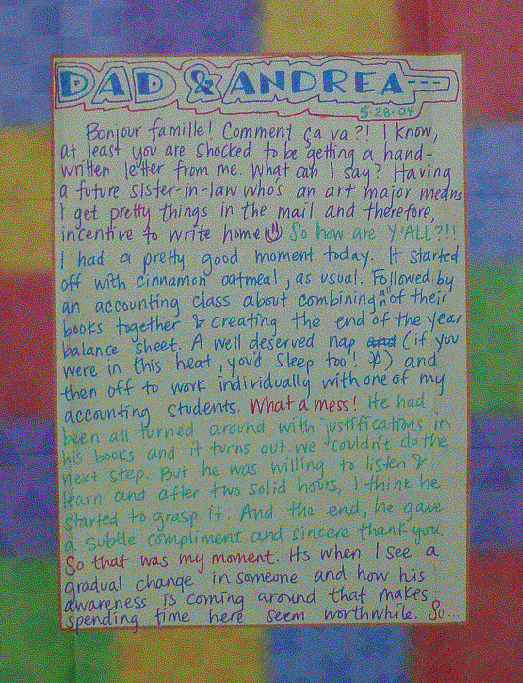 DAD & ANDREA---
5·28·04
Bonjour famille! Comment ça va?! I know,
at least you are shocked to be getting a hand-
written letter from me. What can I say? Having
a future sister-in-law who's an art major means
I get pretty things in the mail and therefore,
incentive to write home. So how are Y'ALL?!!
I had a pretty good moment today. It started
off with cinnamon oatmeal, as usual. Followed by
an accounting class about combining "all" of their
books together & creating the end of the year
balance sheet. A well deserved nap and (if you
were in this heat, you'd sleep too!) and
then off to work individually with one of my
accounting students. What a mess! He had
been all turned around with justifications in
his books and it turns out we couldn't do the
next step. But he was willing to listen &
learn and after two solid hours, I think he
started to grasp it. And the end, he gave
a subtle compliment and sincere thank you.
So that was my moment. Its when I see a
gradual change in someone and how his
awareness is coming around that makes
spending time here seem worthwhile. So...